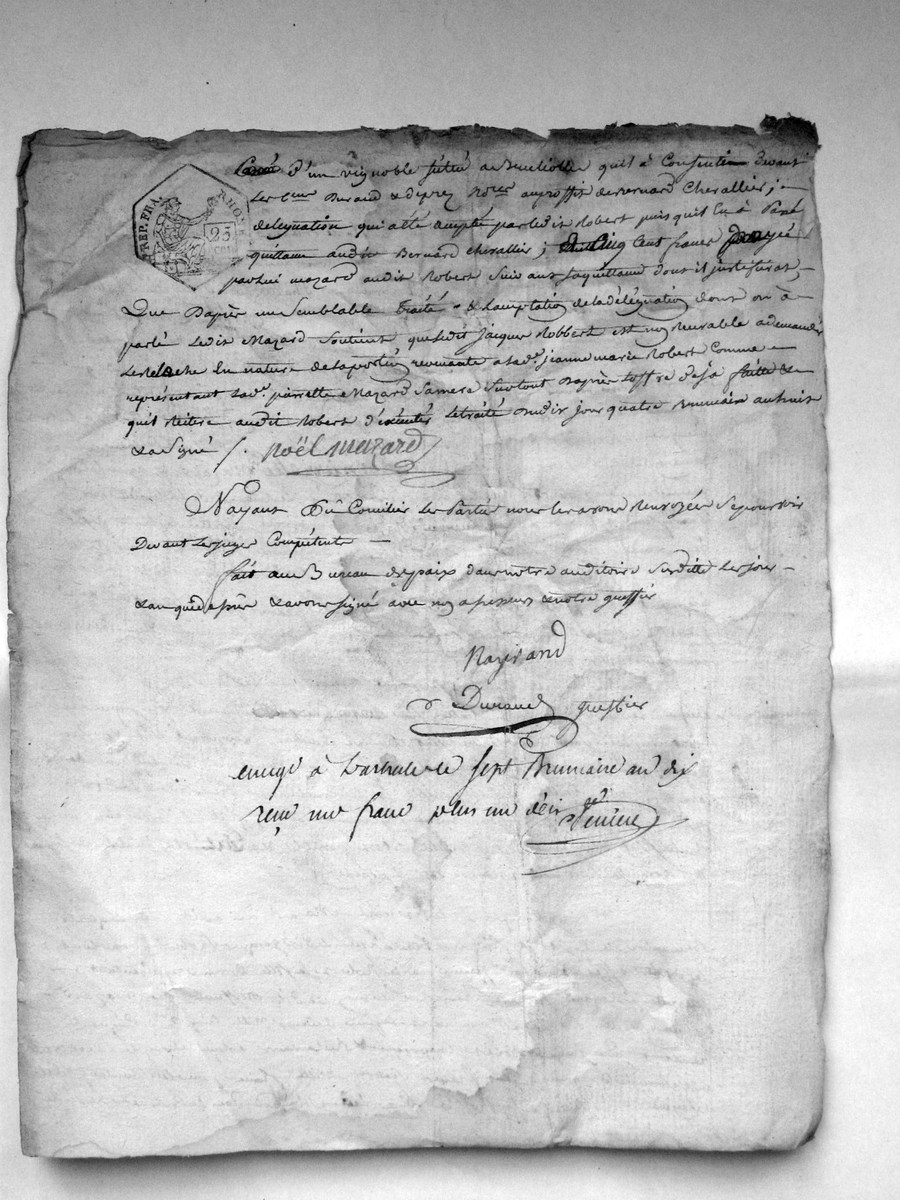 REP. FRA. RHONE
25
d'un vignoble situé a qu'il à Consenti devant
Les C.en Durand & deprez No.res au proffit de Bernard Chevallier ;
delegation qui a été accepté par ledit Robert puis qu'il en à passé
quittance audit Bernard Chevallier ; Cinq Cent francs payé
par lui mazard audit Robert suivant la quittance dont il justifierat
Que D'après un semblable traité & l'acceptation de la délégation dont on à
parlé Ledit Mazard Soutient que ledit jacques Robbert est non recevable a demander
Le relache En nature de la portion revenante a lad.e jeanne marie Robert Comme
représentant Lad.e pierrette Mazard Sa mere Surtout D'après l'offre deja faitte &
qu'il Reitere audit Robert d'executer Le traité dudit jour quatre Brumaire an huit
& a Signé /. Noël mazard
N'ayant pû Concilier Les Parties nous les avons Renvoyées Se pourvoir
Devant Les juges Compétents
fait au Bureau de paix dans notre auditoire Susditte Les jour
& an que d'après & avons signé avec nos assesseurs & notre greffier
Durand greffier
enregé à Larbresle le sept Brumaire an dix
reçu un franc plus un déci